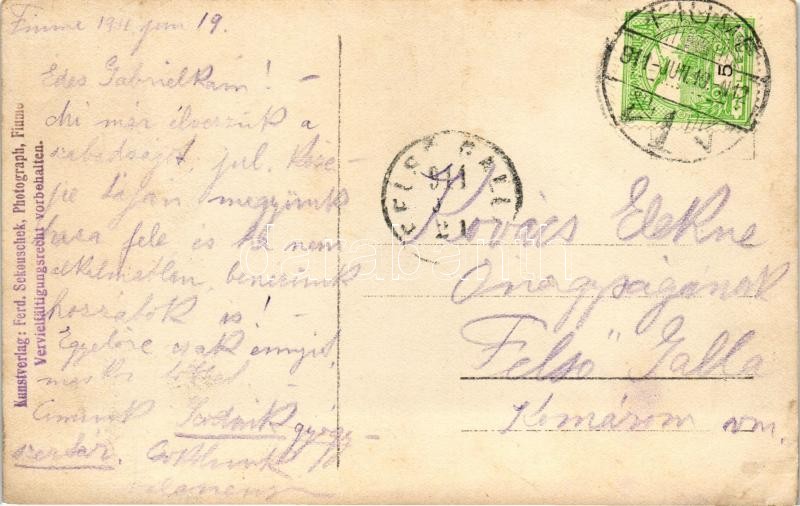 Fiume 1911 jun 19.
Édes Gabrielkám! –
Mi már élvezzük a
szabadságot, jul. köze-
pe táján megyünk
haza felé és ha nem
alkalmatlan, benézünk
hozzátok is! –
Egyelőre csak ennyit,
Címünk gyógy-
szertár.
Kunstverlag: Ferd. Sekouschek, Photograph, Fiume
Vervielfältigungsrecht vorbehalten.
FIUME
911 – JUN. 19.
5
FELSŐ GALLA
911
Kovács Elekné
Önagyságának
Felső Galla
Komárom vm.
darabanth